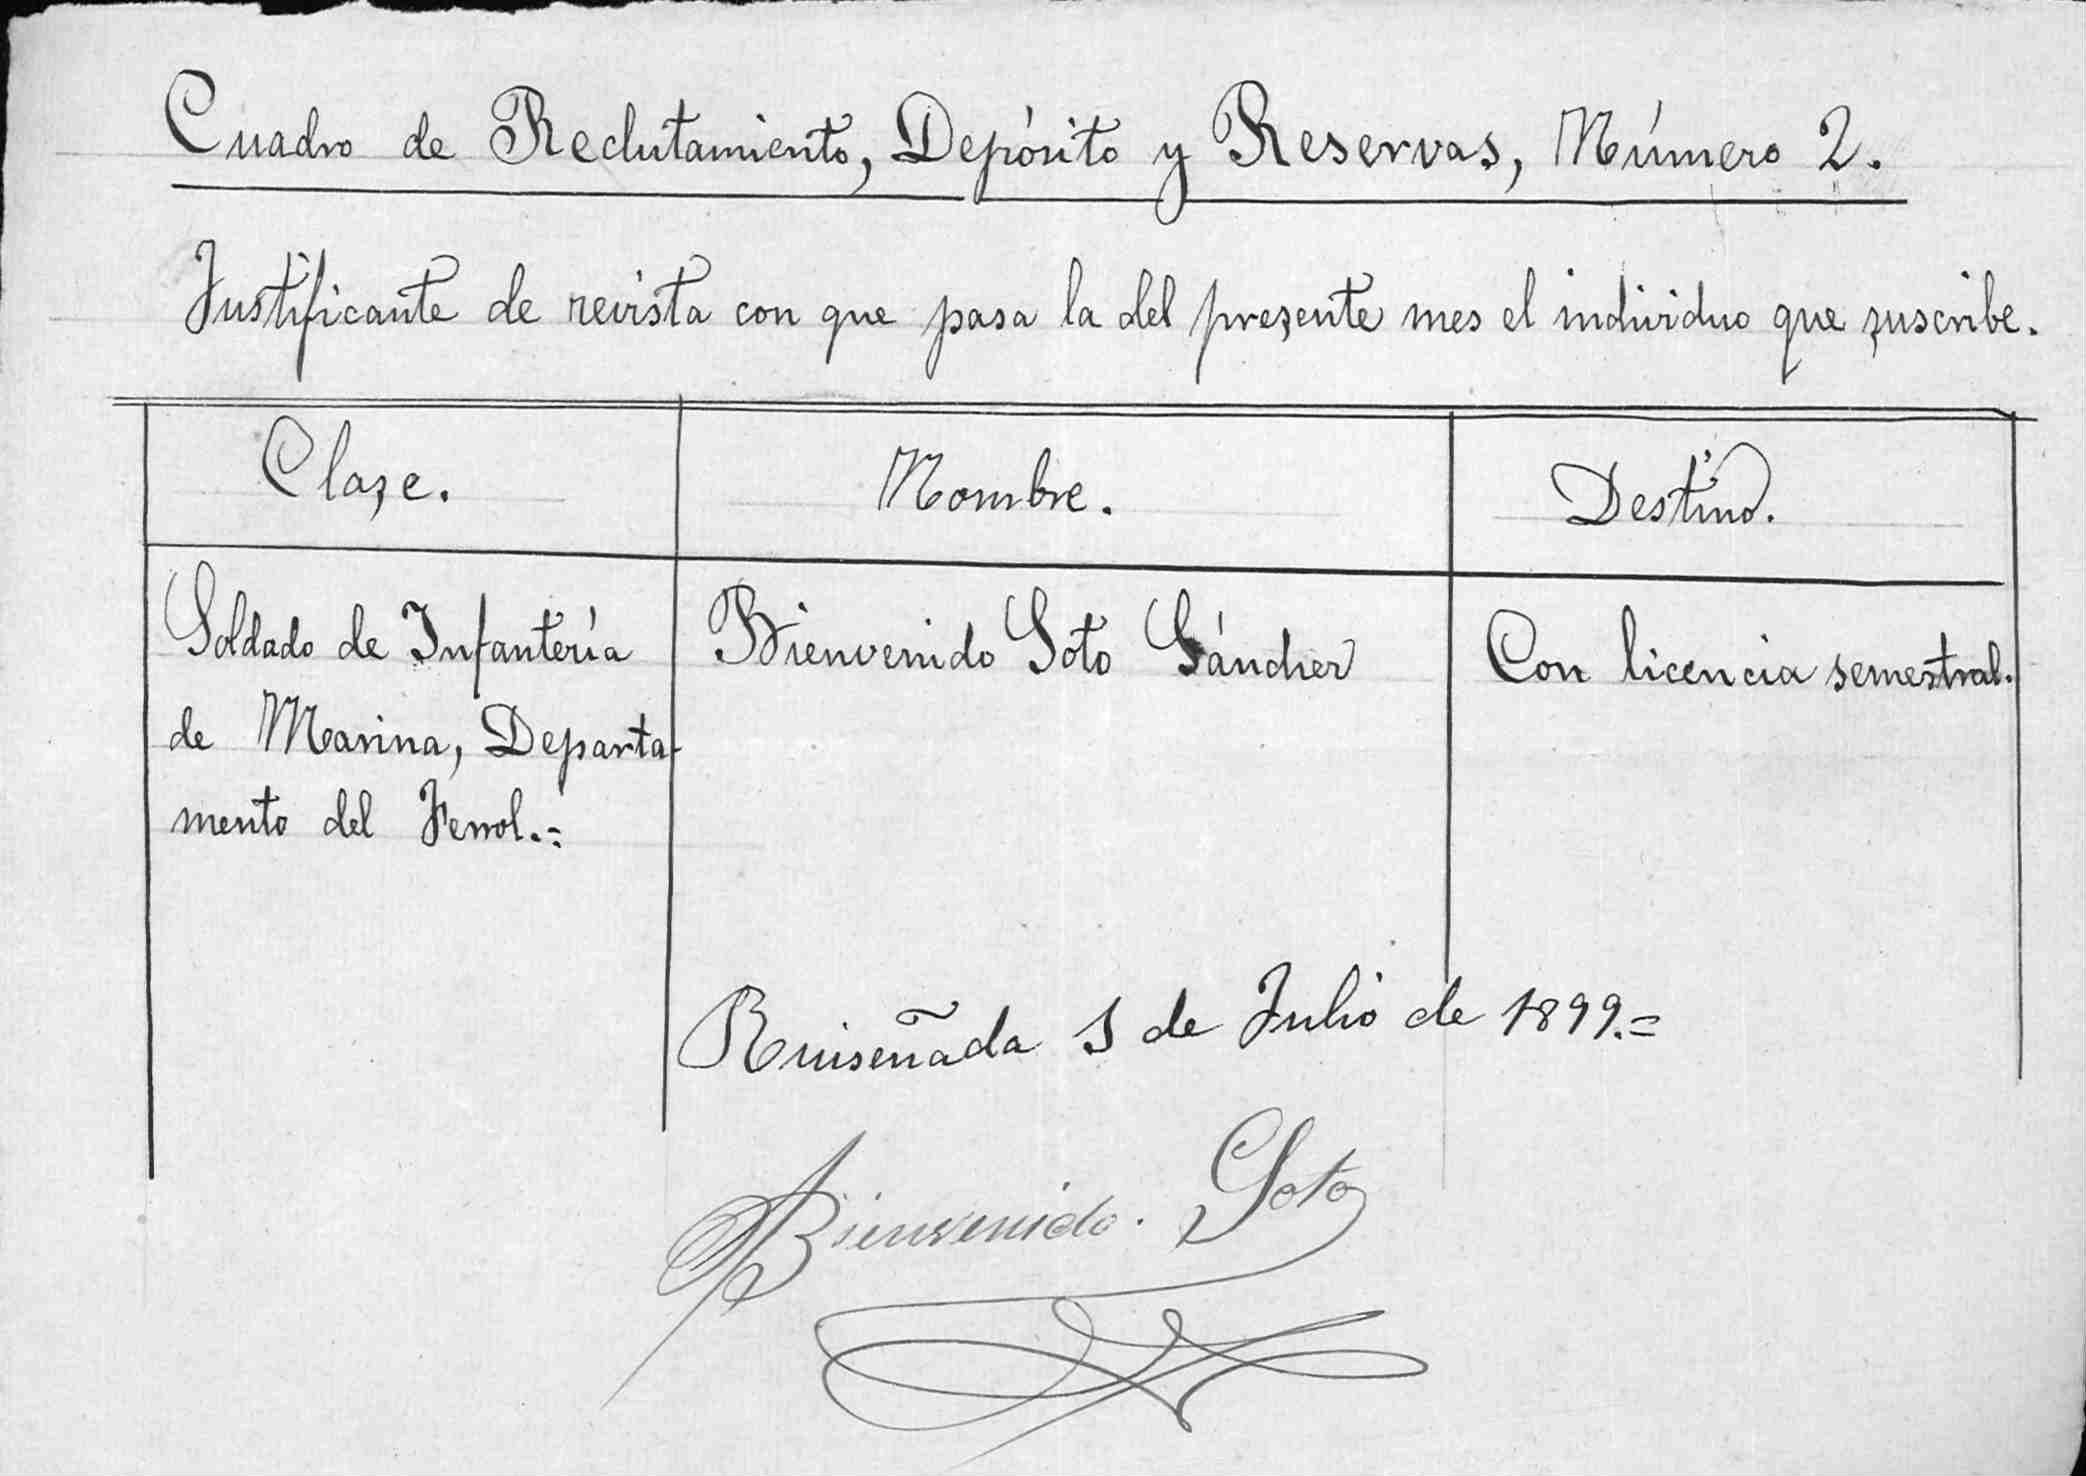 Cuadro de Reclutamiento, Depósito y Reservas, Número 2.
Justificante de revista con que pasa la del presente mes el individuo que suscribe.
Clase.
Nombre.
Destino.
Soldado de Infantería
de Marina, Departa-
mento del Ferrol.=
Bienvenido Soto Sánchez
Con licencia semestral.
Ruiseñada 1 de Julio de 1899.=
Bienvenido Soto